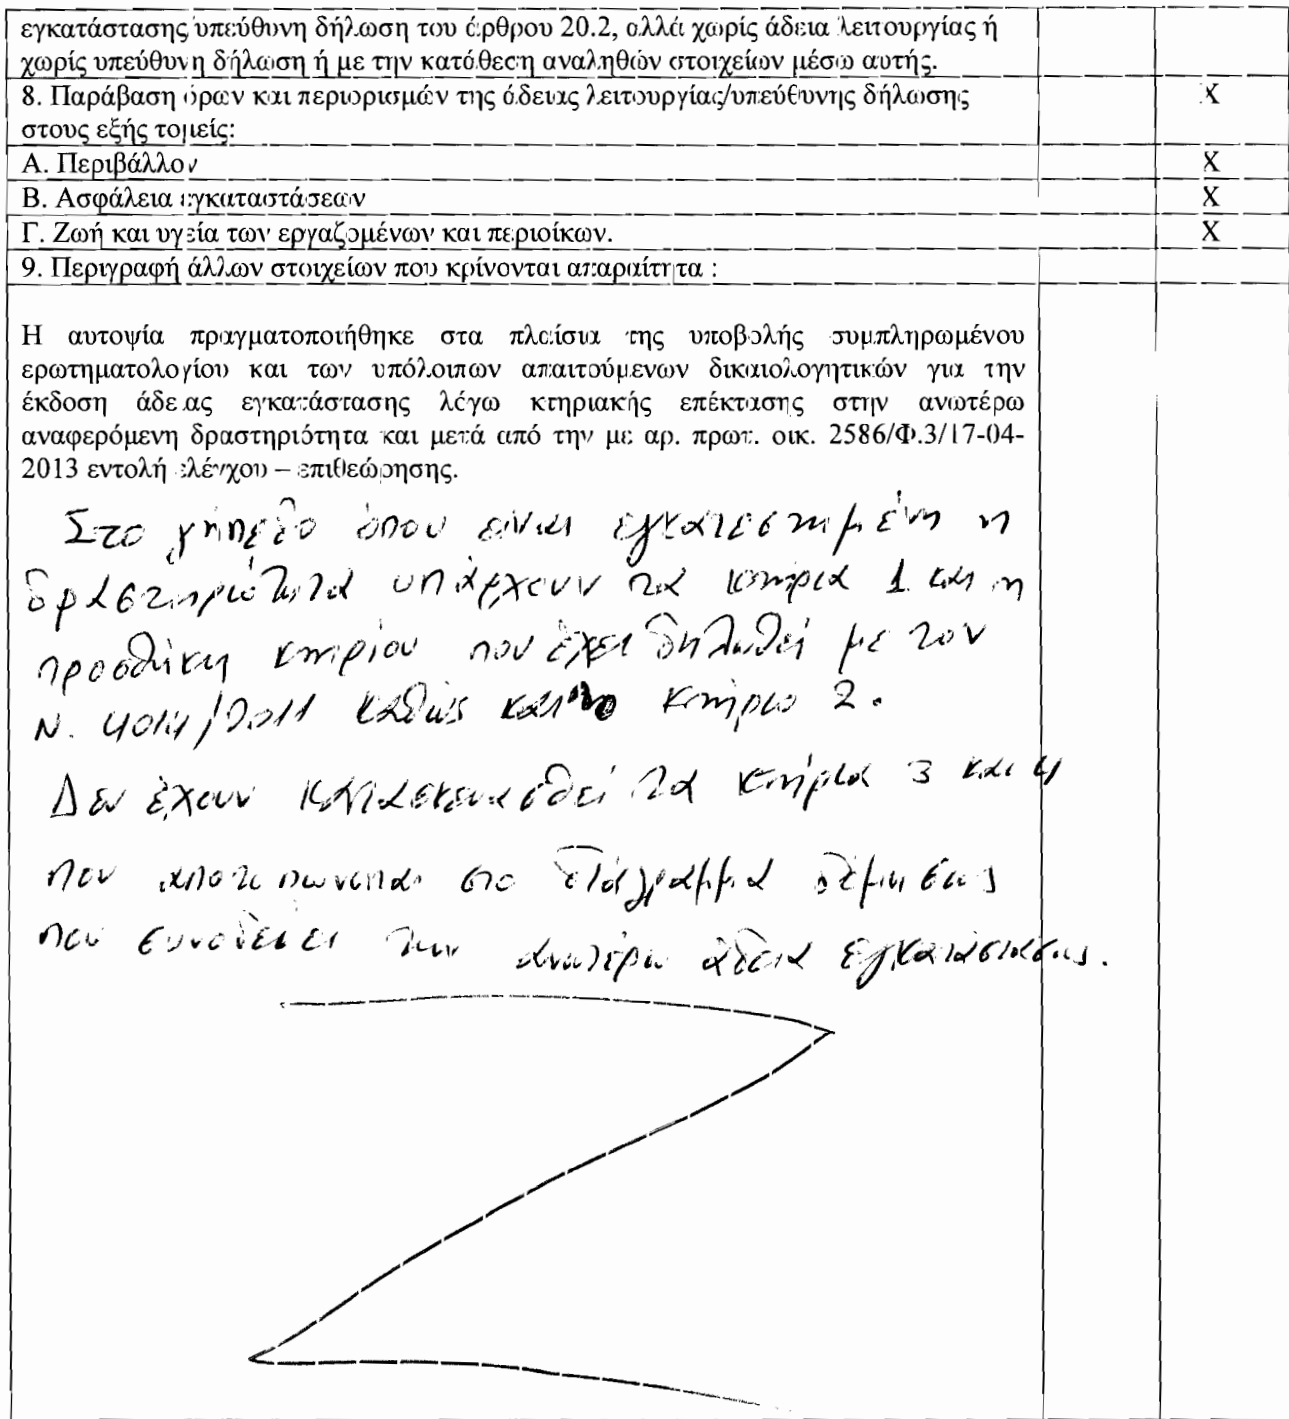 εγκατάστασης/υπεύθυνη δήλωση του άρθρου 20.2, αλλά χωρίς άδεια λειτουργίας ή
χωρίς υπεύθυνη δήλωση ή με την κατάθεση αναληθών στοιχείων μέσω αυτής.
8. Παράβαση όρων και περιορισμών της άδειας λειτουργίας/υπεύθυνης δήλωσης X
στους εξής τομείς:
Α. Περιβάλλον X
Β. Ασφάλεια εγκαταστάσεων X
Γ. Ζωή και υγεία των εργαζομένων και περιοίκων. X
9. Περιγραφή άλλων στοιχείων που κρίνονται απαραίτητα :
Η αυτοψία πραγματοποιήθηκε στα πλαίσια της υποβολής συμπληρωμένου
ερωτηματολογίου και των υπόλοιπων απαιτούμενων δικαιολογητικών για την
έκδοση άδειας εγκατάστασης λέγω κτηριακής επέκτασης στην ανωτέρω
αναφερόμενη δραστηριότητα και μετά από την με αρ. πρωτ. οικ. 2586/Φ.3/17-04-
2013 εντολή ελέγχου – επιθεώρησης.
Στο γήπεδο όπου είναι εγκατεστημένη η
δραστηριότητα υπάρχουν τα κτήρια 1 και η
προσθήκη κτηρίου που έχει δηλωθεί με τον
Ν. 4014/2011 καθώς και το κτήριο 2.
Δεν έχουν κατασκευασθεί τα κτήρια 3 και 4
που αποτυπώνονται στο διάγραμμα δόμησης
που συνοδεύει την ανωτέρω άδεια εγκατάστασης.